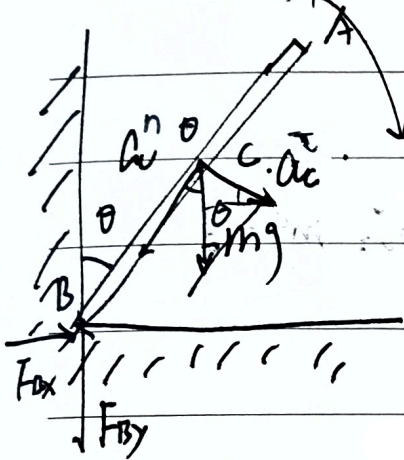 A
aⁿ θ
C
a_c^τ
θ
θ
mg
B
F_Bx
F_By